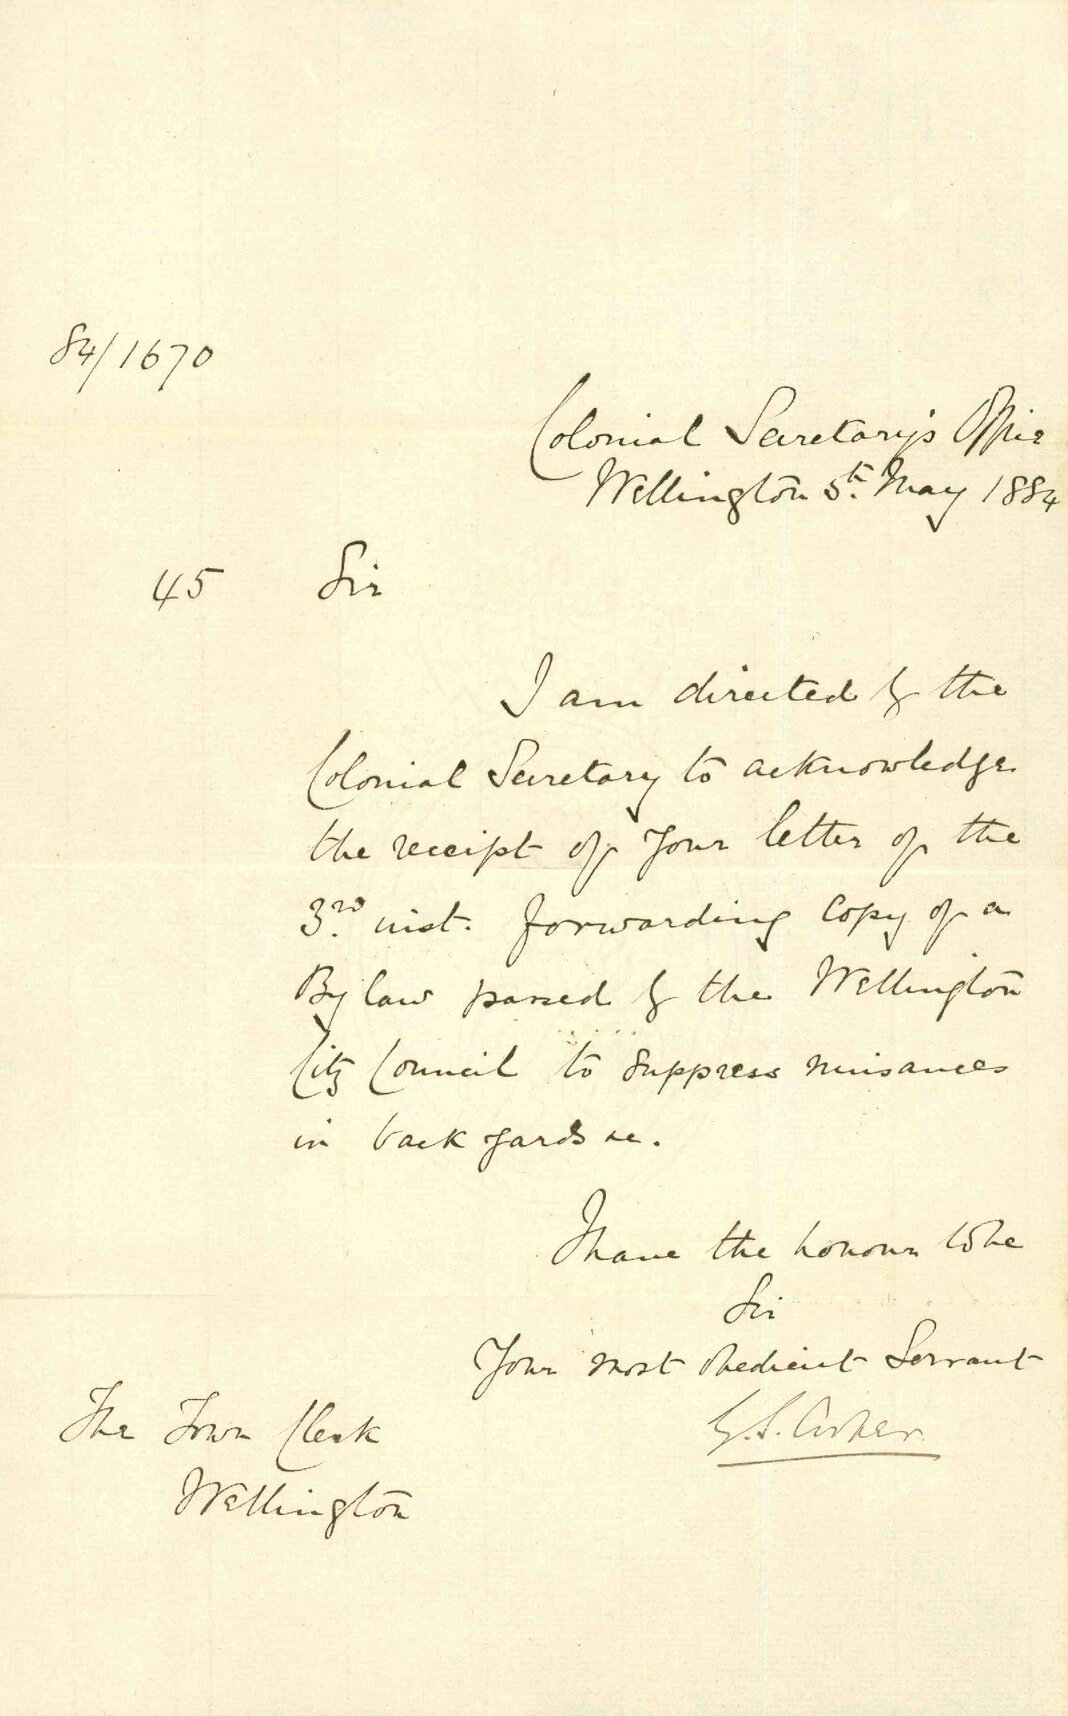 84/1670
Colonial Secretary's Office
Wellington 5th. May 1884
45 Sir
I am directed by the
Colonial Secretary to acknowledge
the receipt of your letter of the
3rd. inst. forwarding copy of a
By law passed by the Wellington
City Council to suppress nuisances
in back yards &c.
I have the honour to be
Sir
Your most obedient Servant
G.S. Cooper
The Town Clerk
Wellington